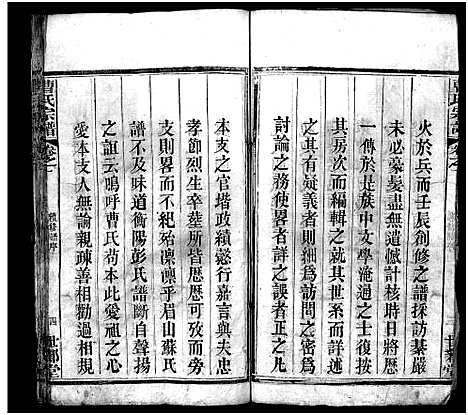 火於兵而壬辰創修之譜採訪綦嚴
未必豪髮盡無遺憾計核時日將歷
一傳於是族中文學淹通之士復按
其房次而編輯之就其世系而詳述
之其有疑義者則細為訪問之密為
討論之務使畧者詳之誤者正之凡
本支之官堦政績懿行嘉言與夫忠
孝節烈生卒塟所皆歷歷可攷而旁
支則畧而不紀殆凜凜乎眉山蘇氏
譜不及味道衡陽彭氏譜斷自聲揚
之詛云嗚呼曹氏苟本此愛祖之心
愛本支人無論親疎善相勸過相規
曹氏宗譜
卷之
四